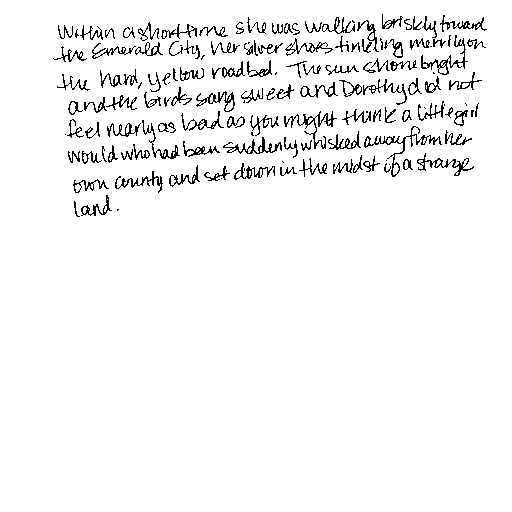 Within a short time she was walking briskly toward
the Emerald City, her silver shoes tinkling merrily on
the hard, yellow roadbed. The sun shone bright
and the birds sang sweet and Dorothy did not
feel nearly as bad as you might think a little girl
would who had been suddenly whisked away from her
own county and set down in the midst of a strange
land.